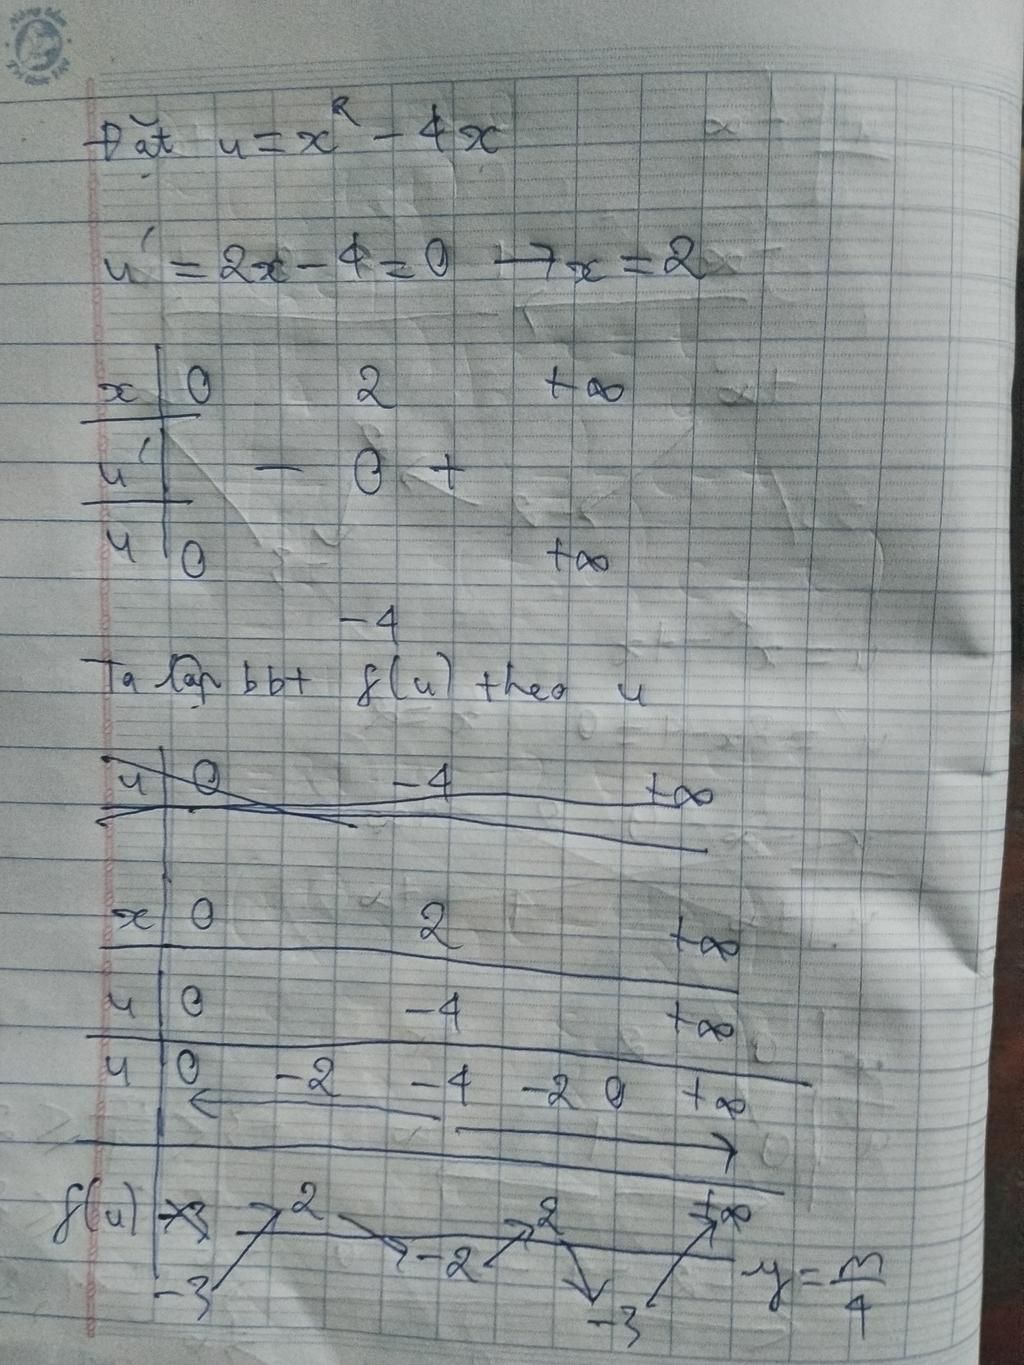 Đặt u = x² - 4x
u' = 2x - 4 = 0 → x = 2
x 0 2 +∞
u' - 0 +
u 0 +∞
-4
Ta lập bbt f(u) theo u
u 0 -4 +∞
x 0 2 +∞
u 0 -4 +∞
u 0 -2 -4 -2 0 +∞
f(u) 2 2 +∞
-3 -2 -3 y = m/4